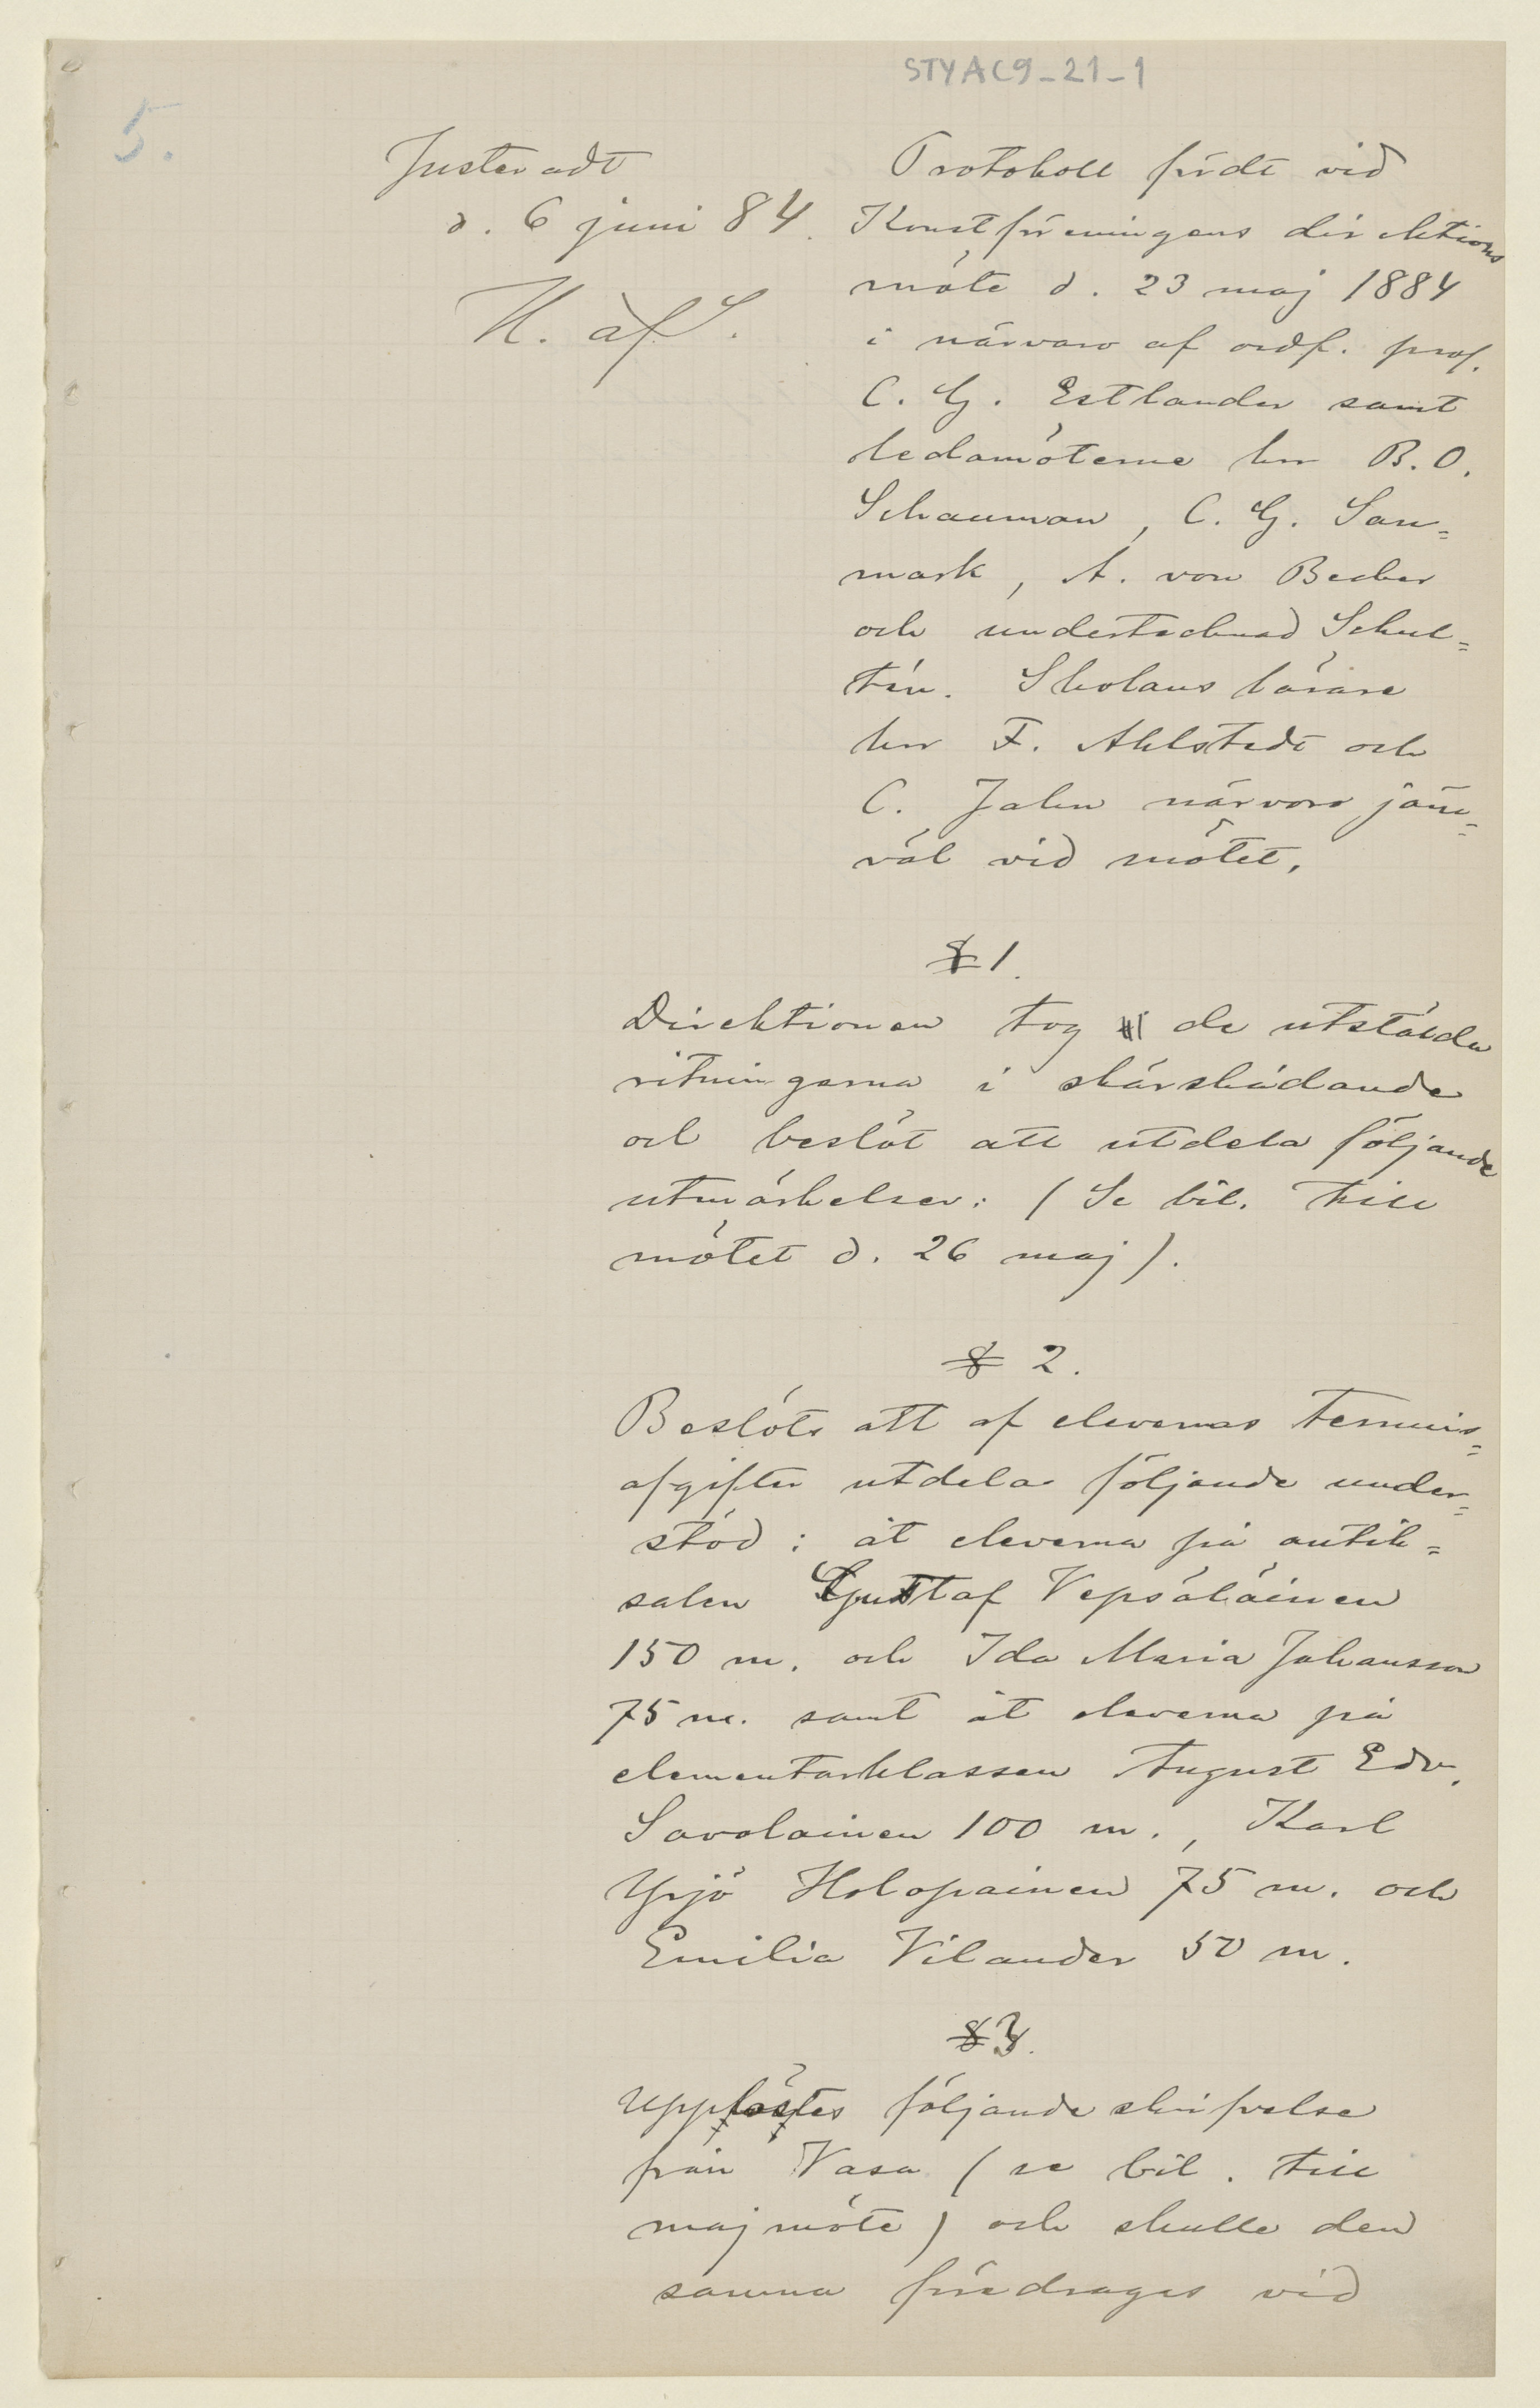 STYAC9_21_1
5.
Justeradt
d. 6 juni 84.
K. af S.
Protokoll fördt vid
Konstföreningens direktions
möte d. 23 maj 1884
i närvaro af ordf. prof.
C. G. Estlander samt
ledamöterne hrr B. O.
Schauman, C. G. San=
mark, A. von Becker
och undertecknad Schul=
tén. Skolans lärare
hrr F. Ahlstedt och
C. Jahn närvoro jäm=
väl vid mötet.
§ 1.
Direktionen tog de utstälda
ritningarna i skärskådande
och beslöt att utdela följande
utmärkelser: (Se bil. till
mötet d. 26 maj).
§ 2.
Beslöts att af elevernas termins=
afgifter utdela följande under=
stöd: åt eleverna på antik=
salen Gustaf Vepsäläinen
150 m. och Ida Maria Johansson
75 m. samt åt eleverna på
elementarklassen August Edv.
Savolainen 100 m., Karl
Yrjö Holopainen 75 m. och
Emilia Vilander 50 m.
§ 3.
Upplästes följande skrifvelse
från Vasa (se bil. till
majmöte) och skulle den
samma föredragas vid